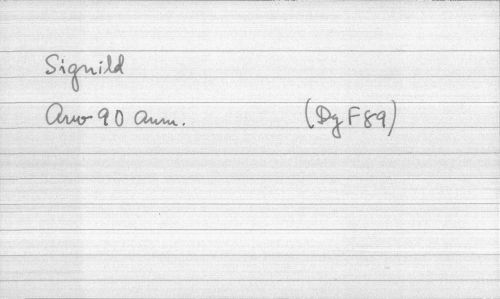 Signild
Arwo 90 anm. (DgF 89)